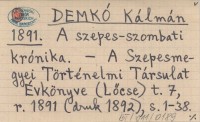 DEMKÓ Kálmán
1891. A szepes-szombati
krónika. – A Szepesme-
gyei Történelmi Társulat
Évkönyve (Lőcse) t. 7,
r. 1891 (Druk 1892), s. 1-38.